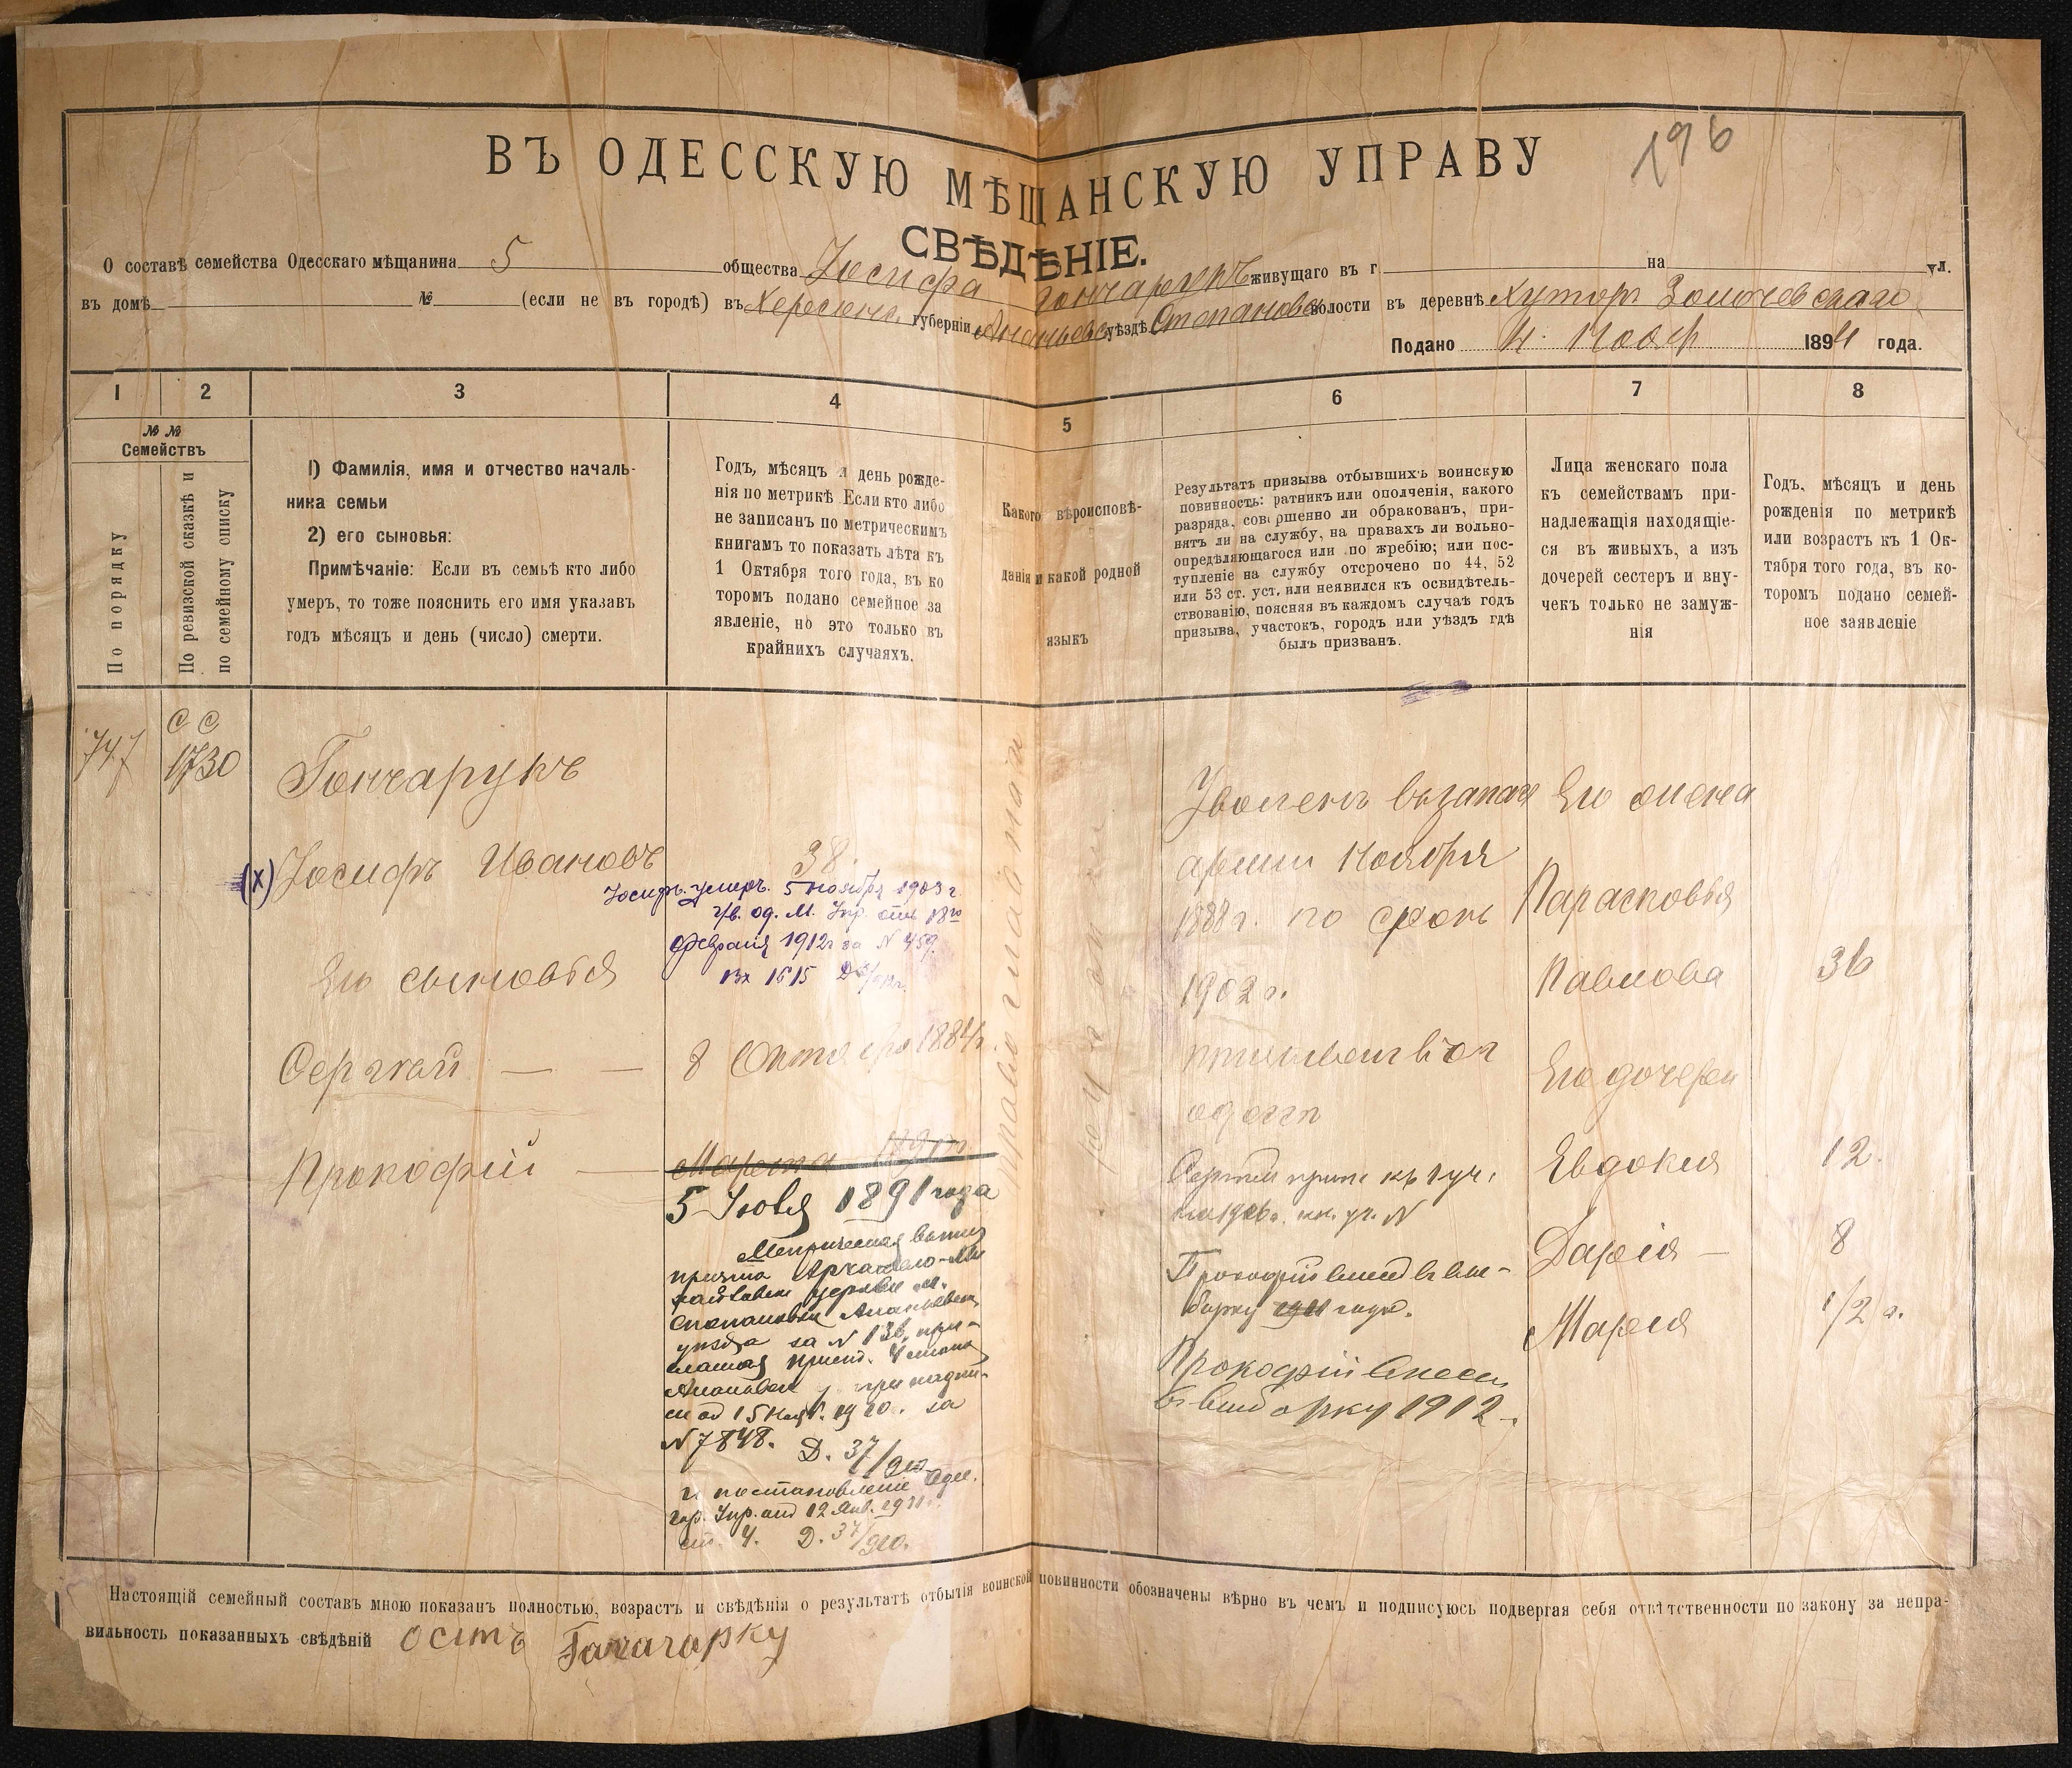 196
ВЪ ОДЕССКУЮ МѢЩАНСКУЮ УПРАВУ
СВѢДѢНІЕ.
О составѣ семейства Одесскаго мѣщанина 5 общества Іосифа Гончарукъ живущаго въ г. на ул.
въ домѣ № (если не въ городѣ) въ Херсонс. губерніи Ананьевс уѣздѣ Степановс волости въ деревнѣ Хуторъ Золочевскаго
Подано 4. Нояб 1894 года.
1 2 3 4 5 6 7 8
№ №
Семействъ
По порядку
По ревизской сказкѣ и
по семейному списку
1) Фамилія, имя и отчество началь-
ника семьи
2) его сыновья:
Примѣчаніе: Если въ семьѣ кто либо
умеръ, то тоже пояснить его имя указавъ
годъ мѣсяцъ и день (число) смерти.
Годъ, мѣсяцъ и день рожде-
нія по метрикѣ Если кто либо
не записанъ по метрическимъ
книгамъ то показать лѣта къ
1 Октября того года, въ ко
торомъ подано семейное за
явленіе, но это только въ
крайнихъ случаяхъ.
Какого вѣроисповѣ-
данія и какой родной
языкъ
Результатъ призыва отбывшихъ воинскую
повинность: ратникъ или ополченія, какого
разряда, совершенно ли обракованъ, при-
нятъ ли на службу, на правахъ ли вольно-
опредѣляющагося или по жребію; или пос-
тупленіе на службу отсрочено по 44, 52
или 53 ст. уст. или неявился къ освидѣтель-
ствованію, поясняя въ каждомъ случаѣ годъ
призыва, участокъ, городъ или уѣздъ гдѣ
былъ призванъ.
Лица женскаго пола
къ семействамъ при-
надлежащія находящіе-
ся въ живыхъ, а изъ
дочерей сестеръ и вну-
чекъ только не замуж-
нія
Годъ, мѣсяцъ и день
рожденія по метрикѣ
или возрастъ къ 1 Ок-
тября того года, въ ко-
торомъ подано семей-
ное заявленіе
747
СС
1730
Гончарукъ
(х) Іосифъ Ивановъ
Его сыновья
Сергѣй — —
Прокофій —
38.
Іосифъ умеръ. 5 ноября 1903 г
од. М. Упр. отъ 18го
февраля 1912 г за N 459.
вх 1615
8 Октября 1884 г.
Марта
5 Июля 1891 года
Метрическая выпись
причта Архангело-Ми
хайловск церкви м.
Степановки Ананьевск.
уѣзда за N 136, при-
при надпи-
си од 15 Нояб. 1910. за
N 7848. Д. 37/910
и постановленіе Одес.
гор. Упр. отъ 12 Янв. 1911 г.
ст. 4. Д. 37/910.
православнаго
Уволенъ въ запасъ
арміи Ноября
1888 г. по срокъ
1902 г.
Сергѣй прип. къ 1 уч.
Прокофій внесенъ въ вы-
борку 1911 года.
Прокофій внесенъ
въ выборку 1912 г.
Его жена
Парасковья
Павлова 36
Его дочери
Евдокия 12.
Дарія — 8
Марія 1/2 г.
Настоящій семейный составъ мною показанъ полностью, возрастъ и свѣдѣнія о результатѣ отбытія воинской повинности обозначены вѣрно въ чемъ и подписуюсь подвергая себя отвѣтственности по закону за непра-
вильность показанныхъ свѣдѣній